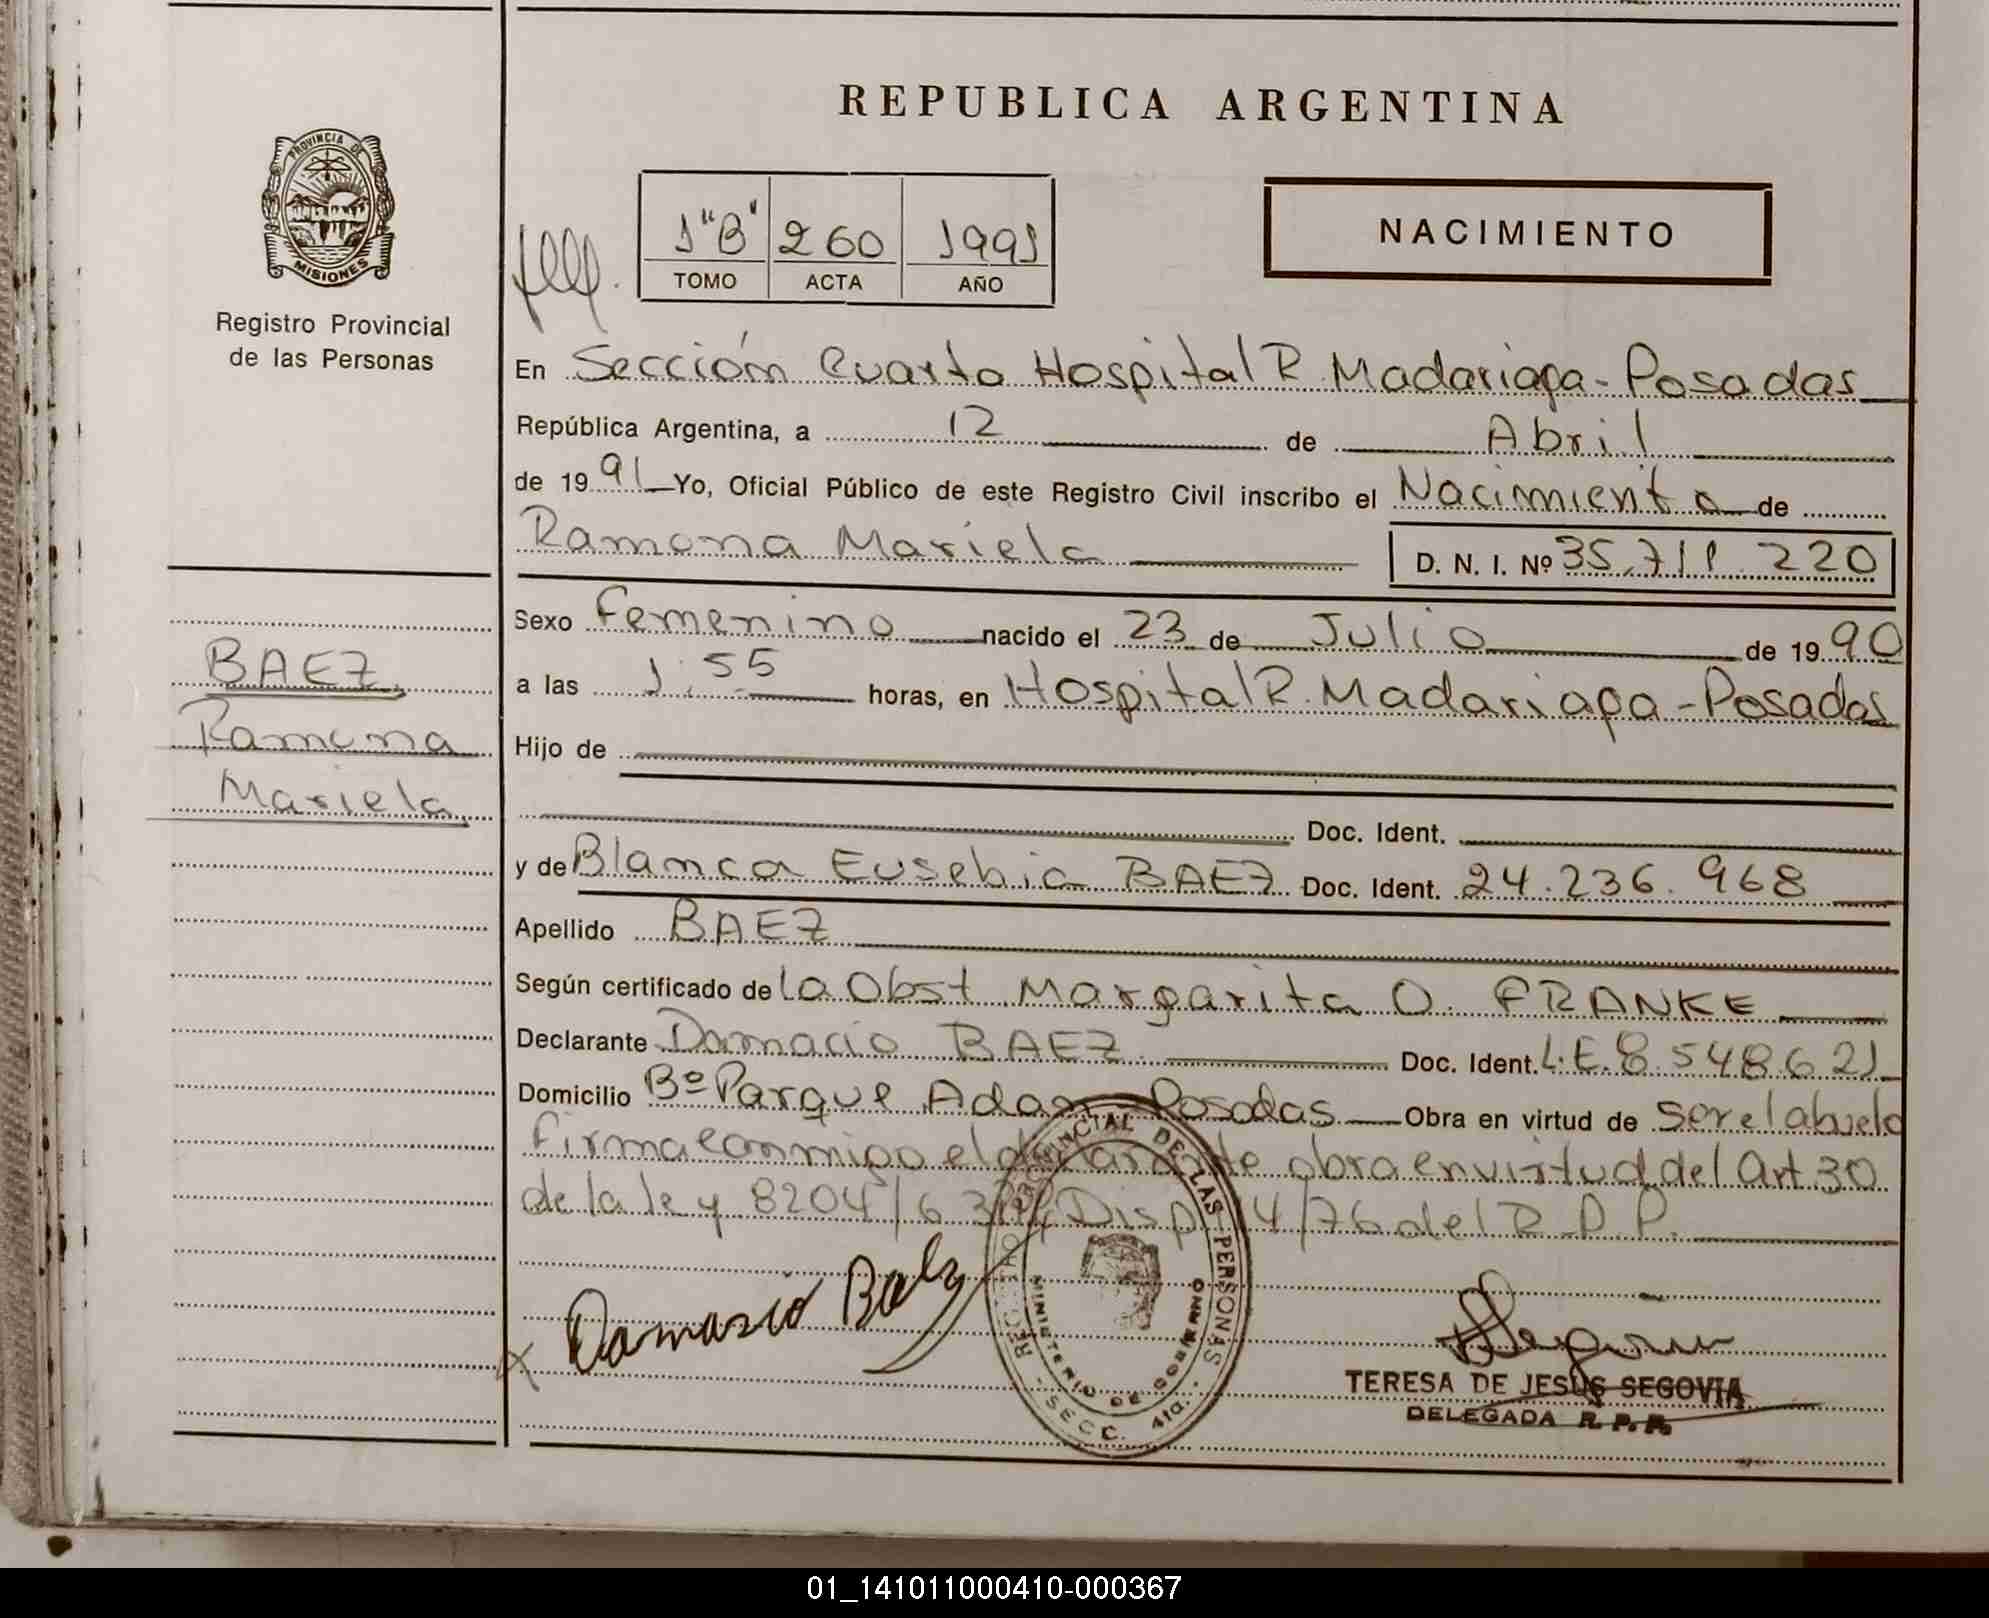 REPUBLICA ARGENTINA
PROVINCIA DE
MISIONES
Registro Provincial
de las Personas
1"B" 260 1991
TOMO ACTA AÑO
NACIMIENTO
En Sección Cuarta Hospital R. Madariaga - Posadas
República Argentina, a 12 de Abril
de 1991 Yo, Oficial Público de este Registro Civil inscribo el Nacimiento de
Ramona Mariela D. N. I. Nº 35.711.220
Sexo Femenino nacido el 23 de Julio de 1990
BAEZ
Ramona
Mariela
a las 1:55 horas, en Hospital R. Madariaga - Posadas
Hijo de
Doc. Ident.
y de Blanca Eusebia BAEZ Doc. Ident. 24.236.968
Apellido BAEZ
Según certificado de la Obst Margarita O. FRANKE
Declarante Damacio BAEZ Doc. Ident. L.E. 8.548.621
Domicilio Bº Parque Adam - Posadas Obra en virtud de ser el abuelo
firma conmigo el declarante obra en virtud del Art 30
de la ley 8204/63 Disp 4/76 del R.P.P.
Damasio Baez
REGISTRO PROVINCIAL DE LAS PERSONAS
MINISTERIO DE GOBIERNO
- SECC. 4ta. -
TERESA DE JESUS SEGOVIA
DELEGADA R. P. P.
01_141011000410-000367